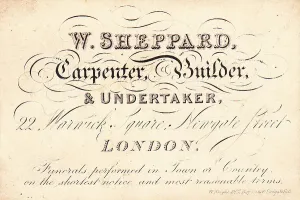 W. SHEPPARD,
Carpenter, Builder,
& UNDERTAKER,
22 Warwick Square, Newgate Street
LONDON.
Funerals performed in Town or Country
on the shortest notice, and most reasonable terms.